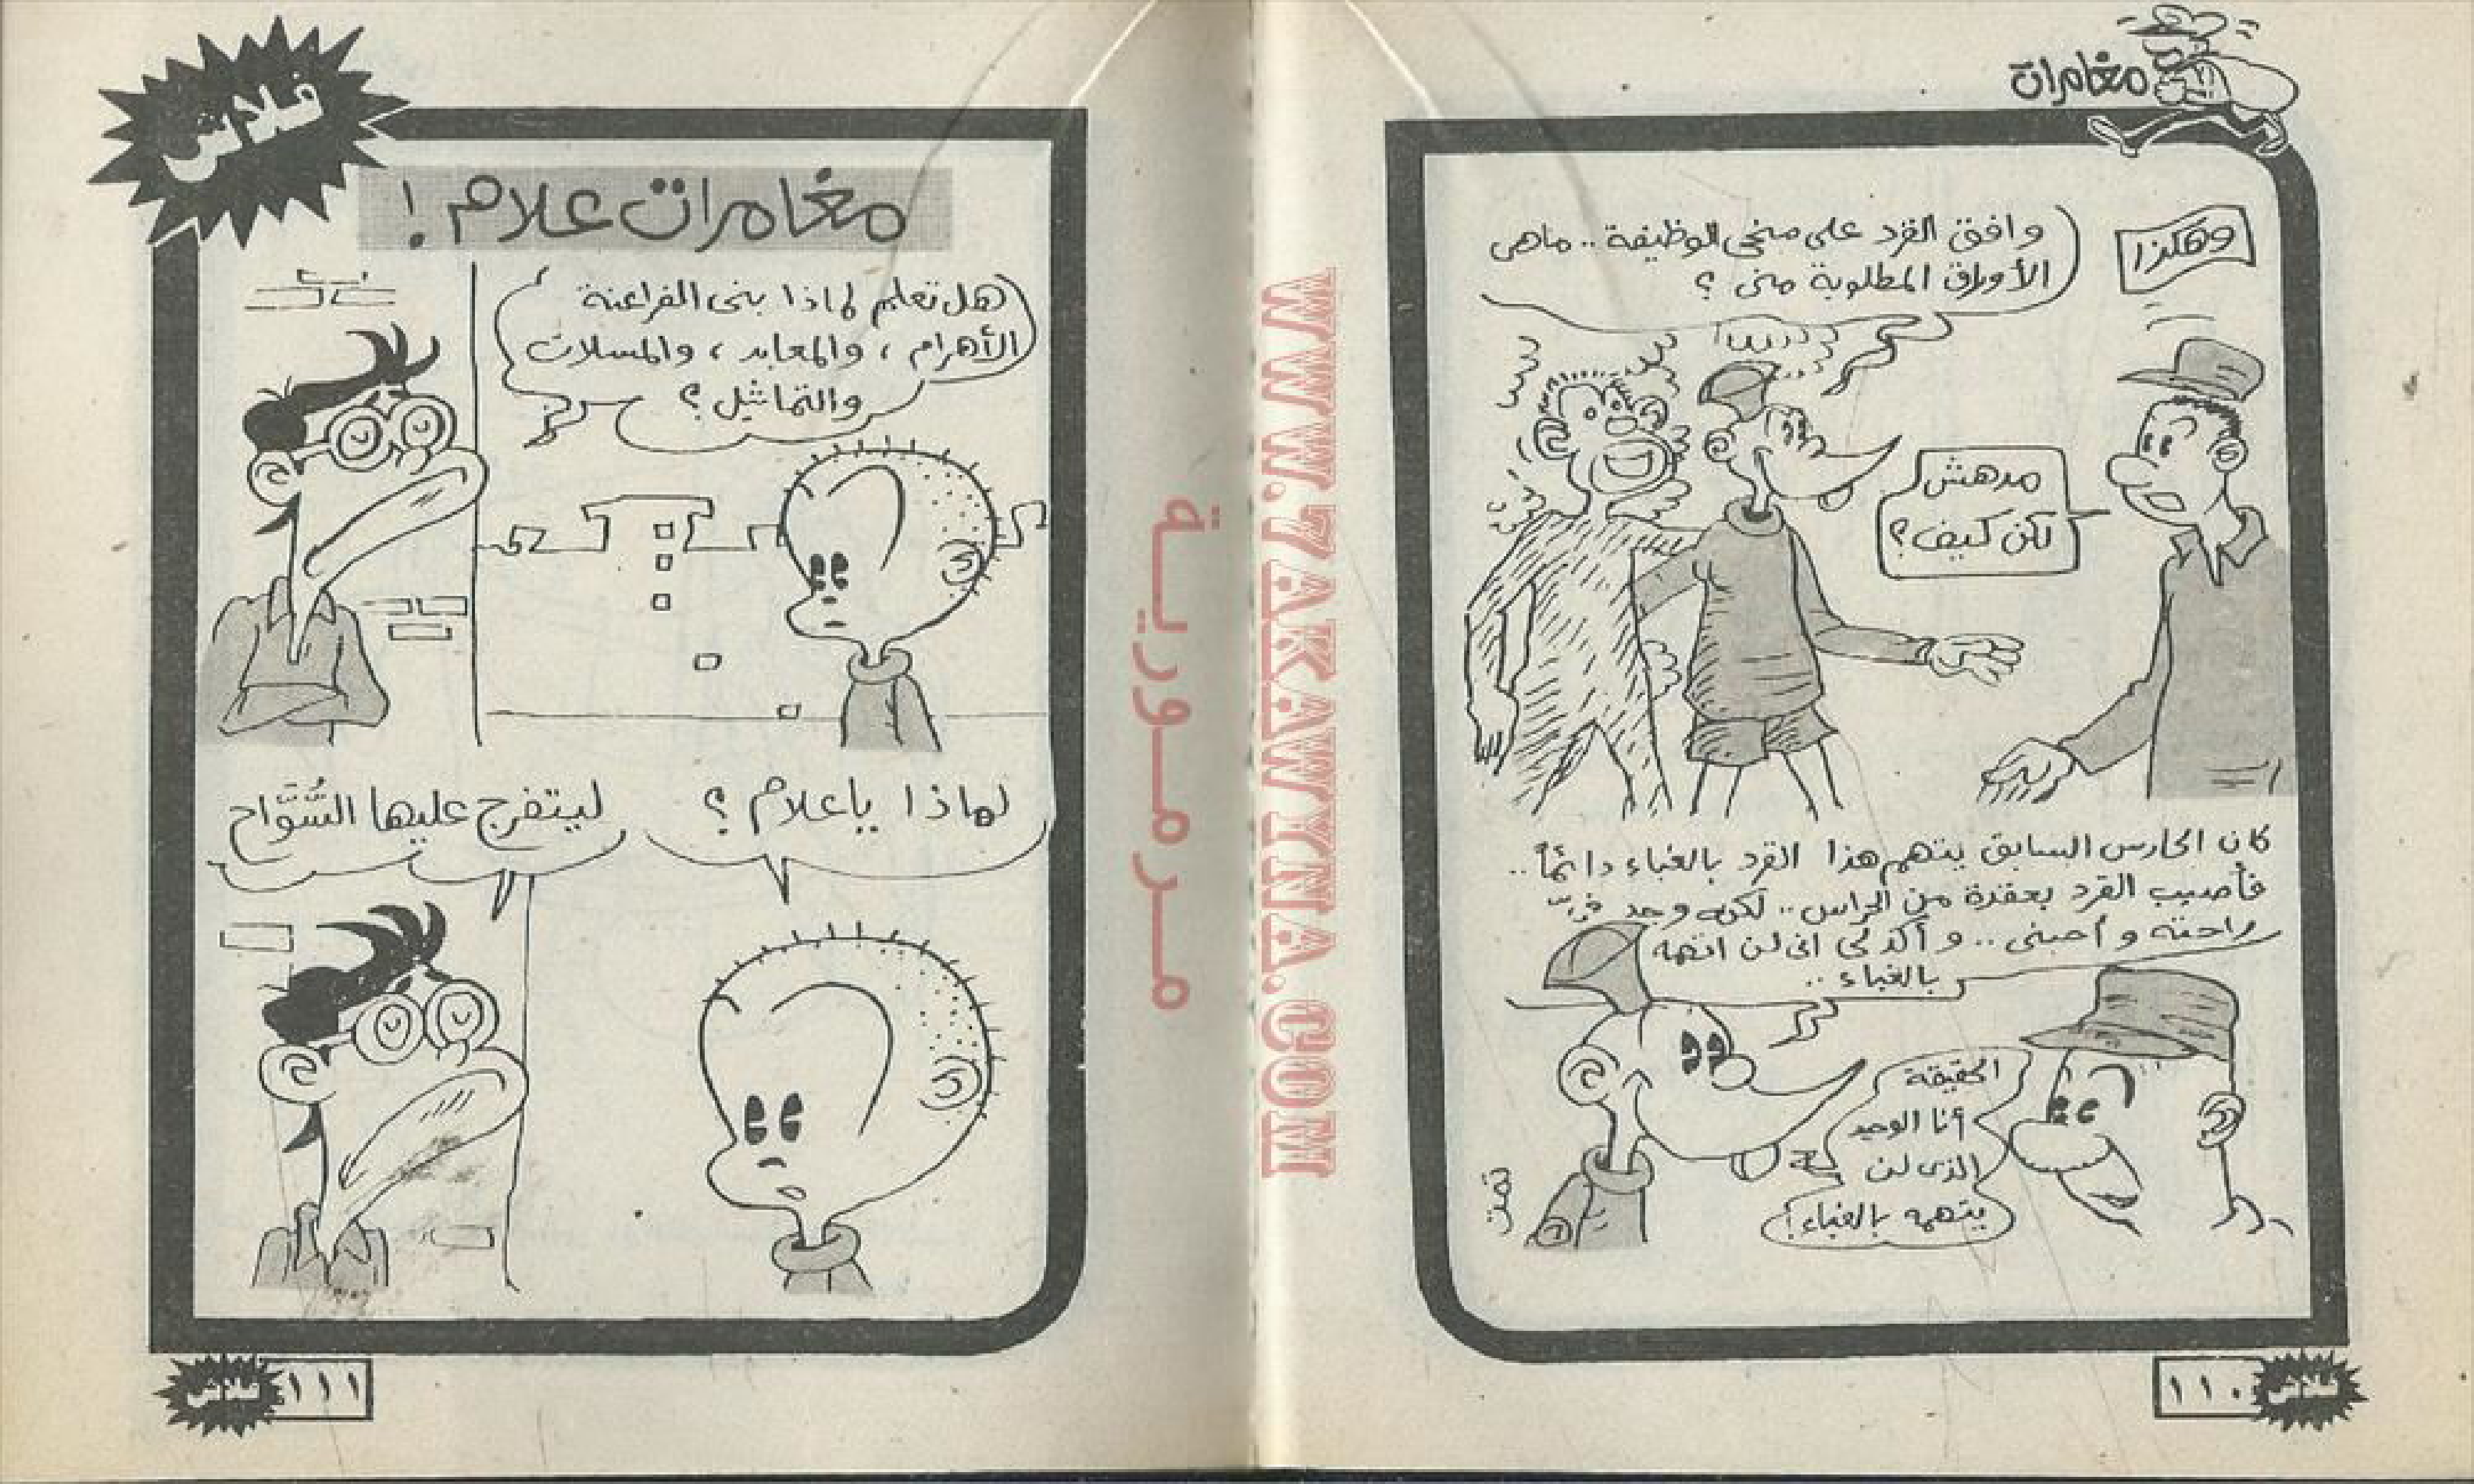 مغامرات
وهكذا
وافق القرد على منحى الوظيفة.. ماهى
الأوراق المطلوبة منى ؟
مدهش
لكن كيف ؟
كان الحارس السابق يتهم هذا القرد بالغباء دائماً..
فأصيب القرد بعقدة من الحراس.. لكنه وجد فىّ
راحته وأحبنى.. وأكد لى انى لن اتهمه
بالغباء..
الحقيقة
أنا الوحيد
الذى لن
يتهمه بالغباء !
تمت
فلاش
١١٠
WWW.7AKAWYNA.COM
مرمورية
فلاش
مغامرات علام !
هل تعلم لماذا بنى الفراعنة
الأهرام ، والمعابد ، والمسلات
والتماثيل ؟
لماذا ياعلام ؟
ليتفرج عليها السُّوَّاح
فلاش
١١١